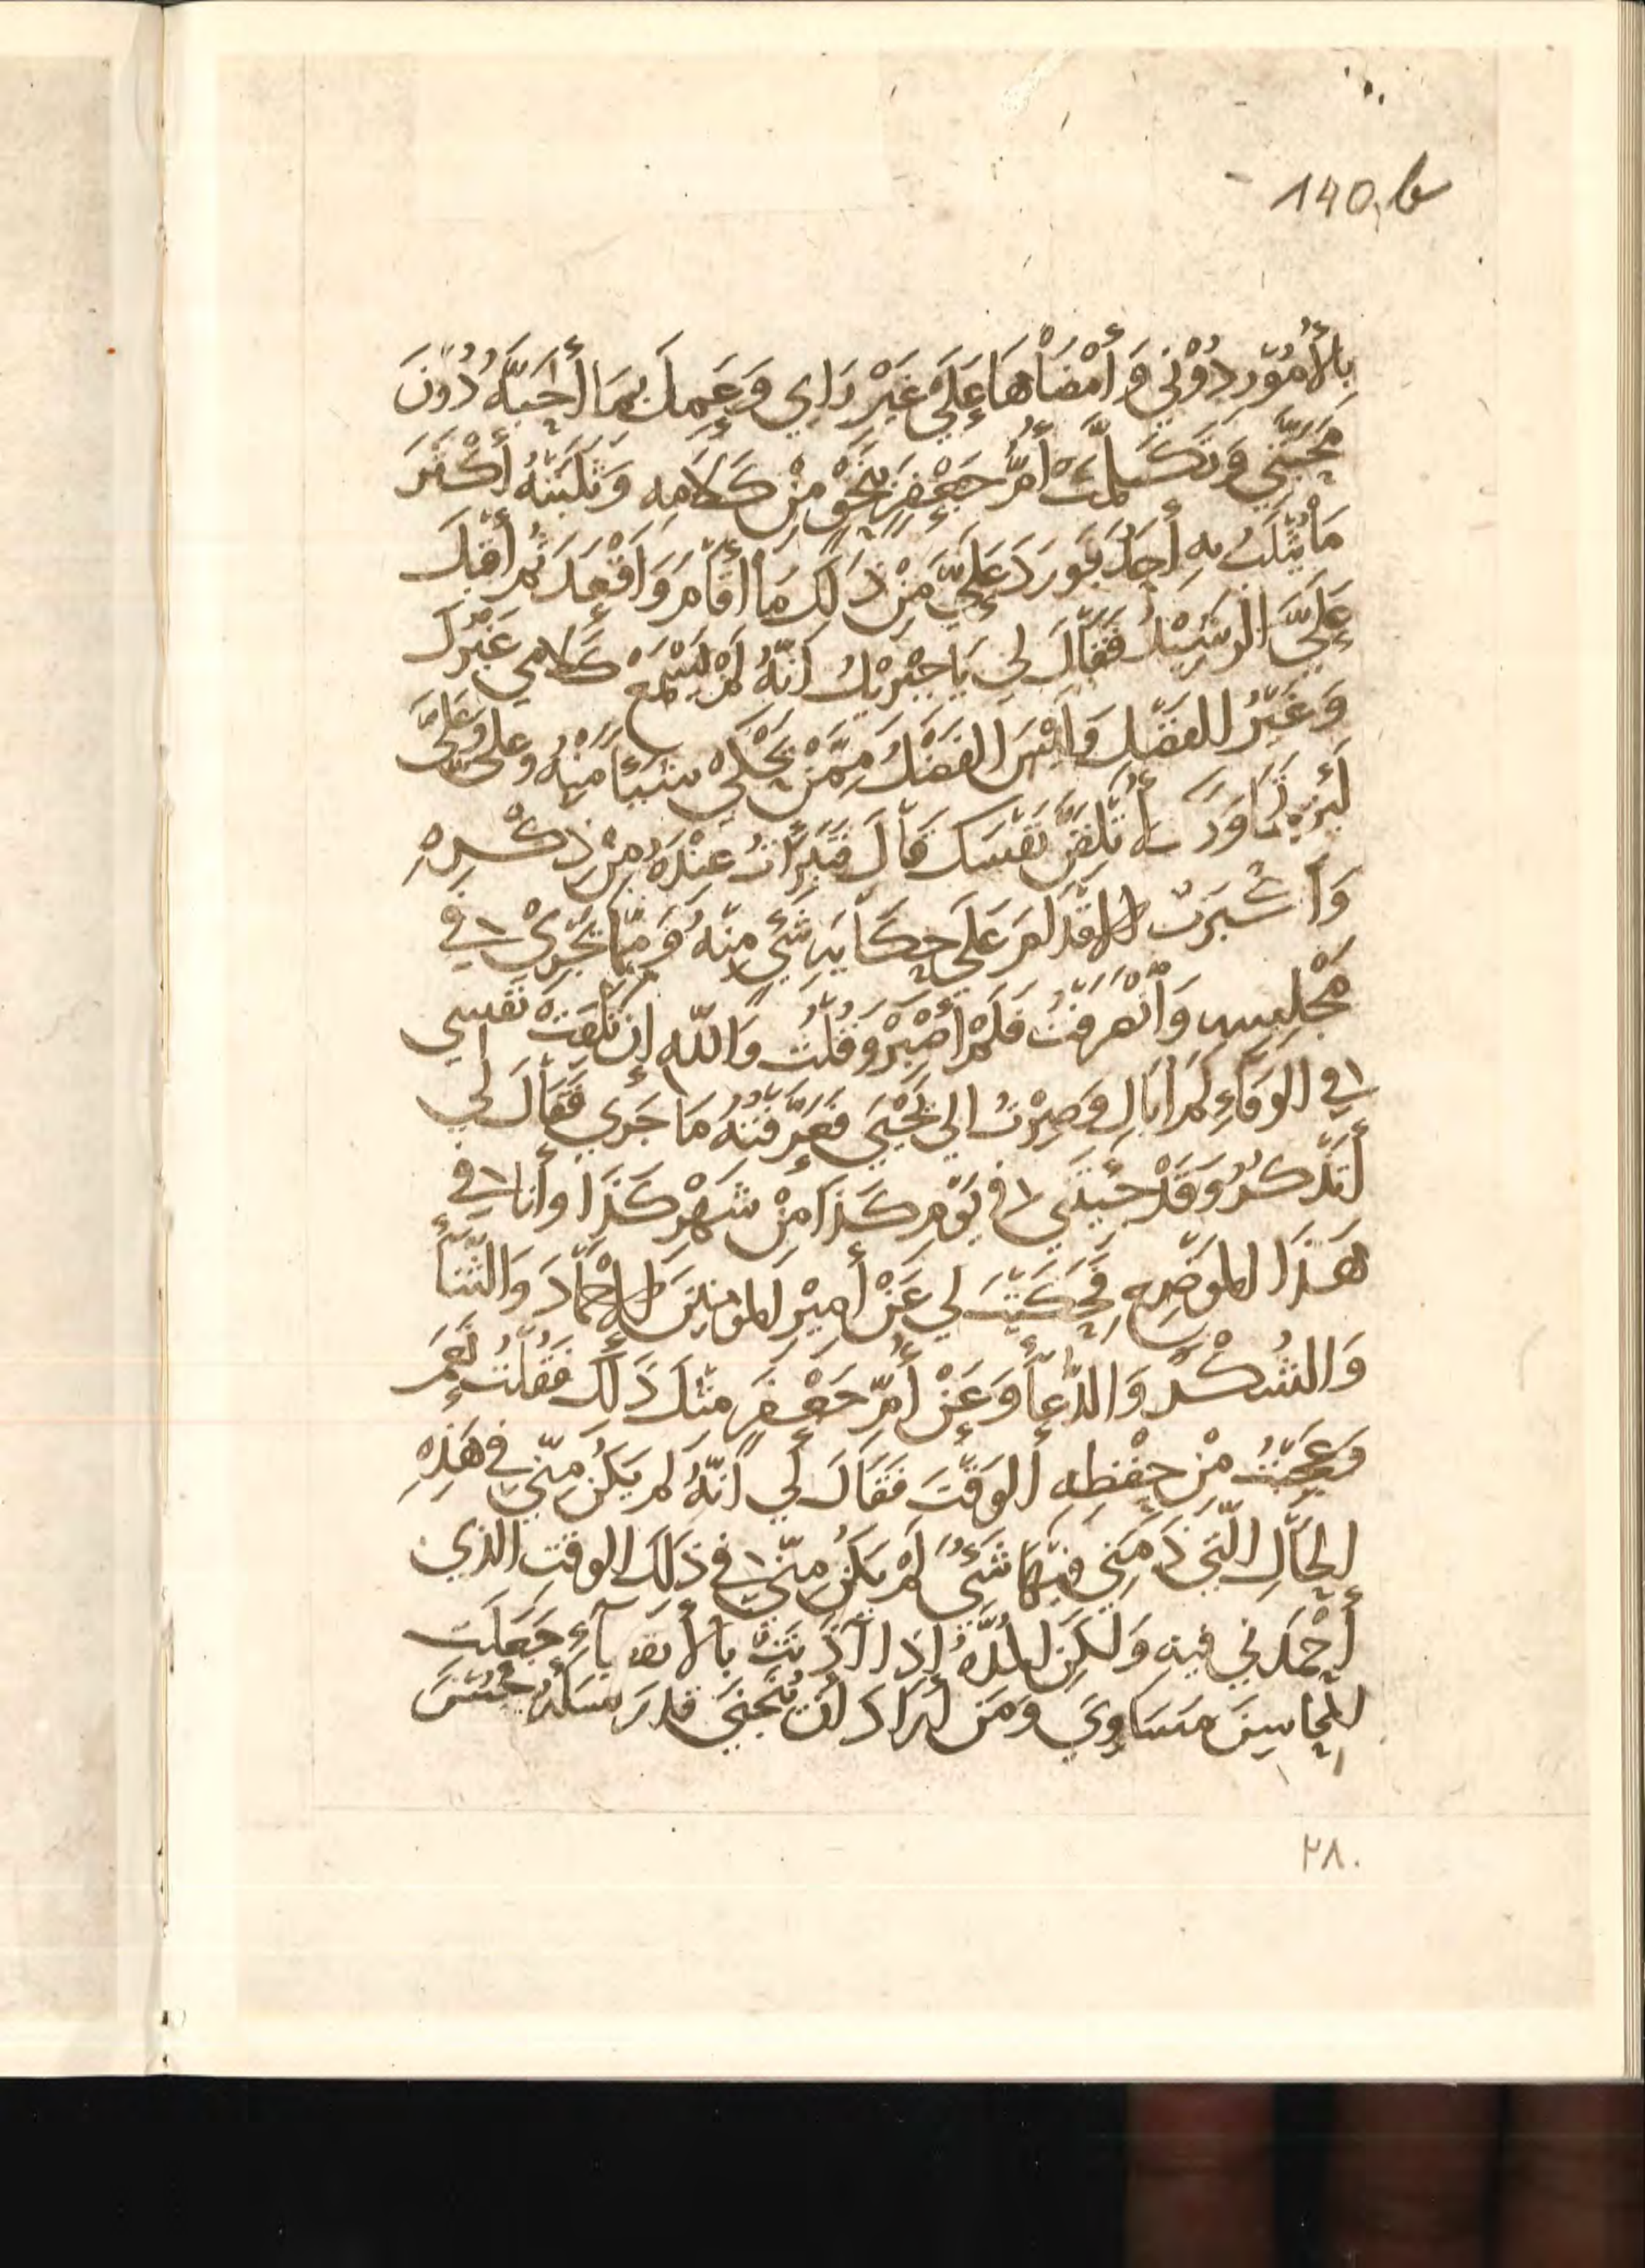 140,b
بِالأُمُوْرِ دُوْنِي وَأَمْضَاْهَا عَلَي غَيْرِ رَاْيِي وَعَمِلَ بِمَا أَحَبَّهُ دُوْنَ
مَحَبَّتِي وَتَكَلَّمَتْ أُمُّ جَعْفِرَ بِنَحْوٍ مِنْ كَلَامِهِ وَثَلَبَتْهُ أَكْثَرَ
مَا يُثْلَبُ بِهِ أَحَدٌ فَوَرَدَ عَلَيَّ مِنْ ذَلِكَ مَا أَقَامَ وَاَقْعَدَ ثُمَّ أَقْبَلَ
عَلَيَّ الرَشِيْدُ فَقَاْلَ لِي يَا جِبْرِيْلُ اَنَّهُ لَمْ يَسْمَعْ كَلَامِي غَيْرُكَ
وَغَيْرُ الفَضْلِ وَلَيْسَ الفَضْلُ مِمَّنْ يَحْكِيْ شَيْأً مِنْهُ وعلي وعَلَيَّ
لَئِنْ تَجَاوَزَكَ لأُتْلِفَنَّ نَفْسَكَ قَاْلَ فَتَبَرَّاتُ عِنْدَهُ مِنْ ذِكْرِهِ
وَاَكْبَرْتُ الاقْدَامَ عَلَي حِكَايَةِ شَيْءٍ مِنْهُ وَمِمَّا يَجْرِيْ فِي
مَجْلِسِهِ وَأَنْصَرَفْتُ فَلَمْ أَصْبِرْ وَقُلْتُ وَاللّهِ إِنْ تَلِفَتْ نَفْسِي
فِي الوَفَاءِ لَمْ اُبَالِ وَصِرْتُ الي يَحْيَي فَعَرَّفْتُهُ مَا جَرَي فَقَاْلَ لِي
أَتَذْكُرُ وَقَدْ جِيْتَنِي فِي يَوْمِ كَذَا مِنْ شَهْرِ كَذَا وأَنَا فِي
هَذَا المَوْضِعِ فَحَكَيْتَ لِي عَنْ أَمِيْرِ المومِنِيْنَ الاحْمَادَ وَالثَّنَأَ
وَالشُكْرَ وَالدُّعَأَ وَعَنْ أُمِّ جَعْفِرَ مِثْلَ ذَلِكَ فَقُلْتُ نَعَمْ
وَعَجِبْتُ مِنْ حِفْظِهِ أَلوَقْتَ فَقَالَ لِي اَنَّهُ لم يَكُنْ مِنِّي فِي هَذِهِ
الحَاْلِ الَّتِي ذَمَنِي فِيْهَا شَيْءٌ لَمْ يَكُنْ مِنِّي فِي ذَلِكَ الوقتِ الذي
أَحْمَدَنِي فيهِ وَلَكِنِ المُدَّةُ إِذَا آذَنَتْ بِالأنقضآءِ جَعَلَت
المَحَاسِنَ مَسَاوِيَ وَمَن أَرَادَ أَن يَتَجَنَّي قدر نسأله حُسْنَ
٣٨٠